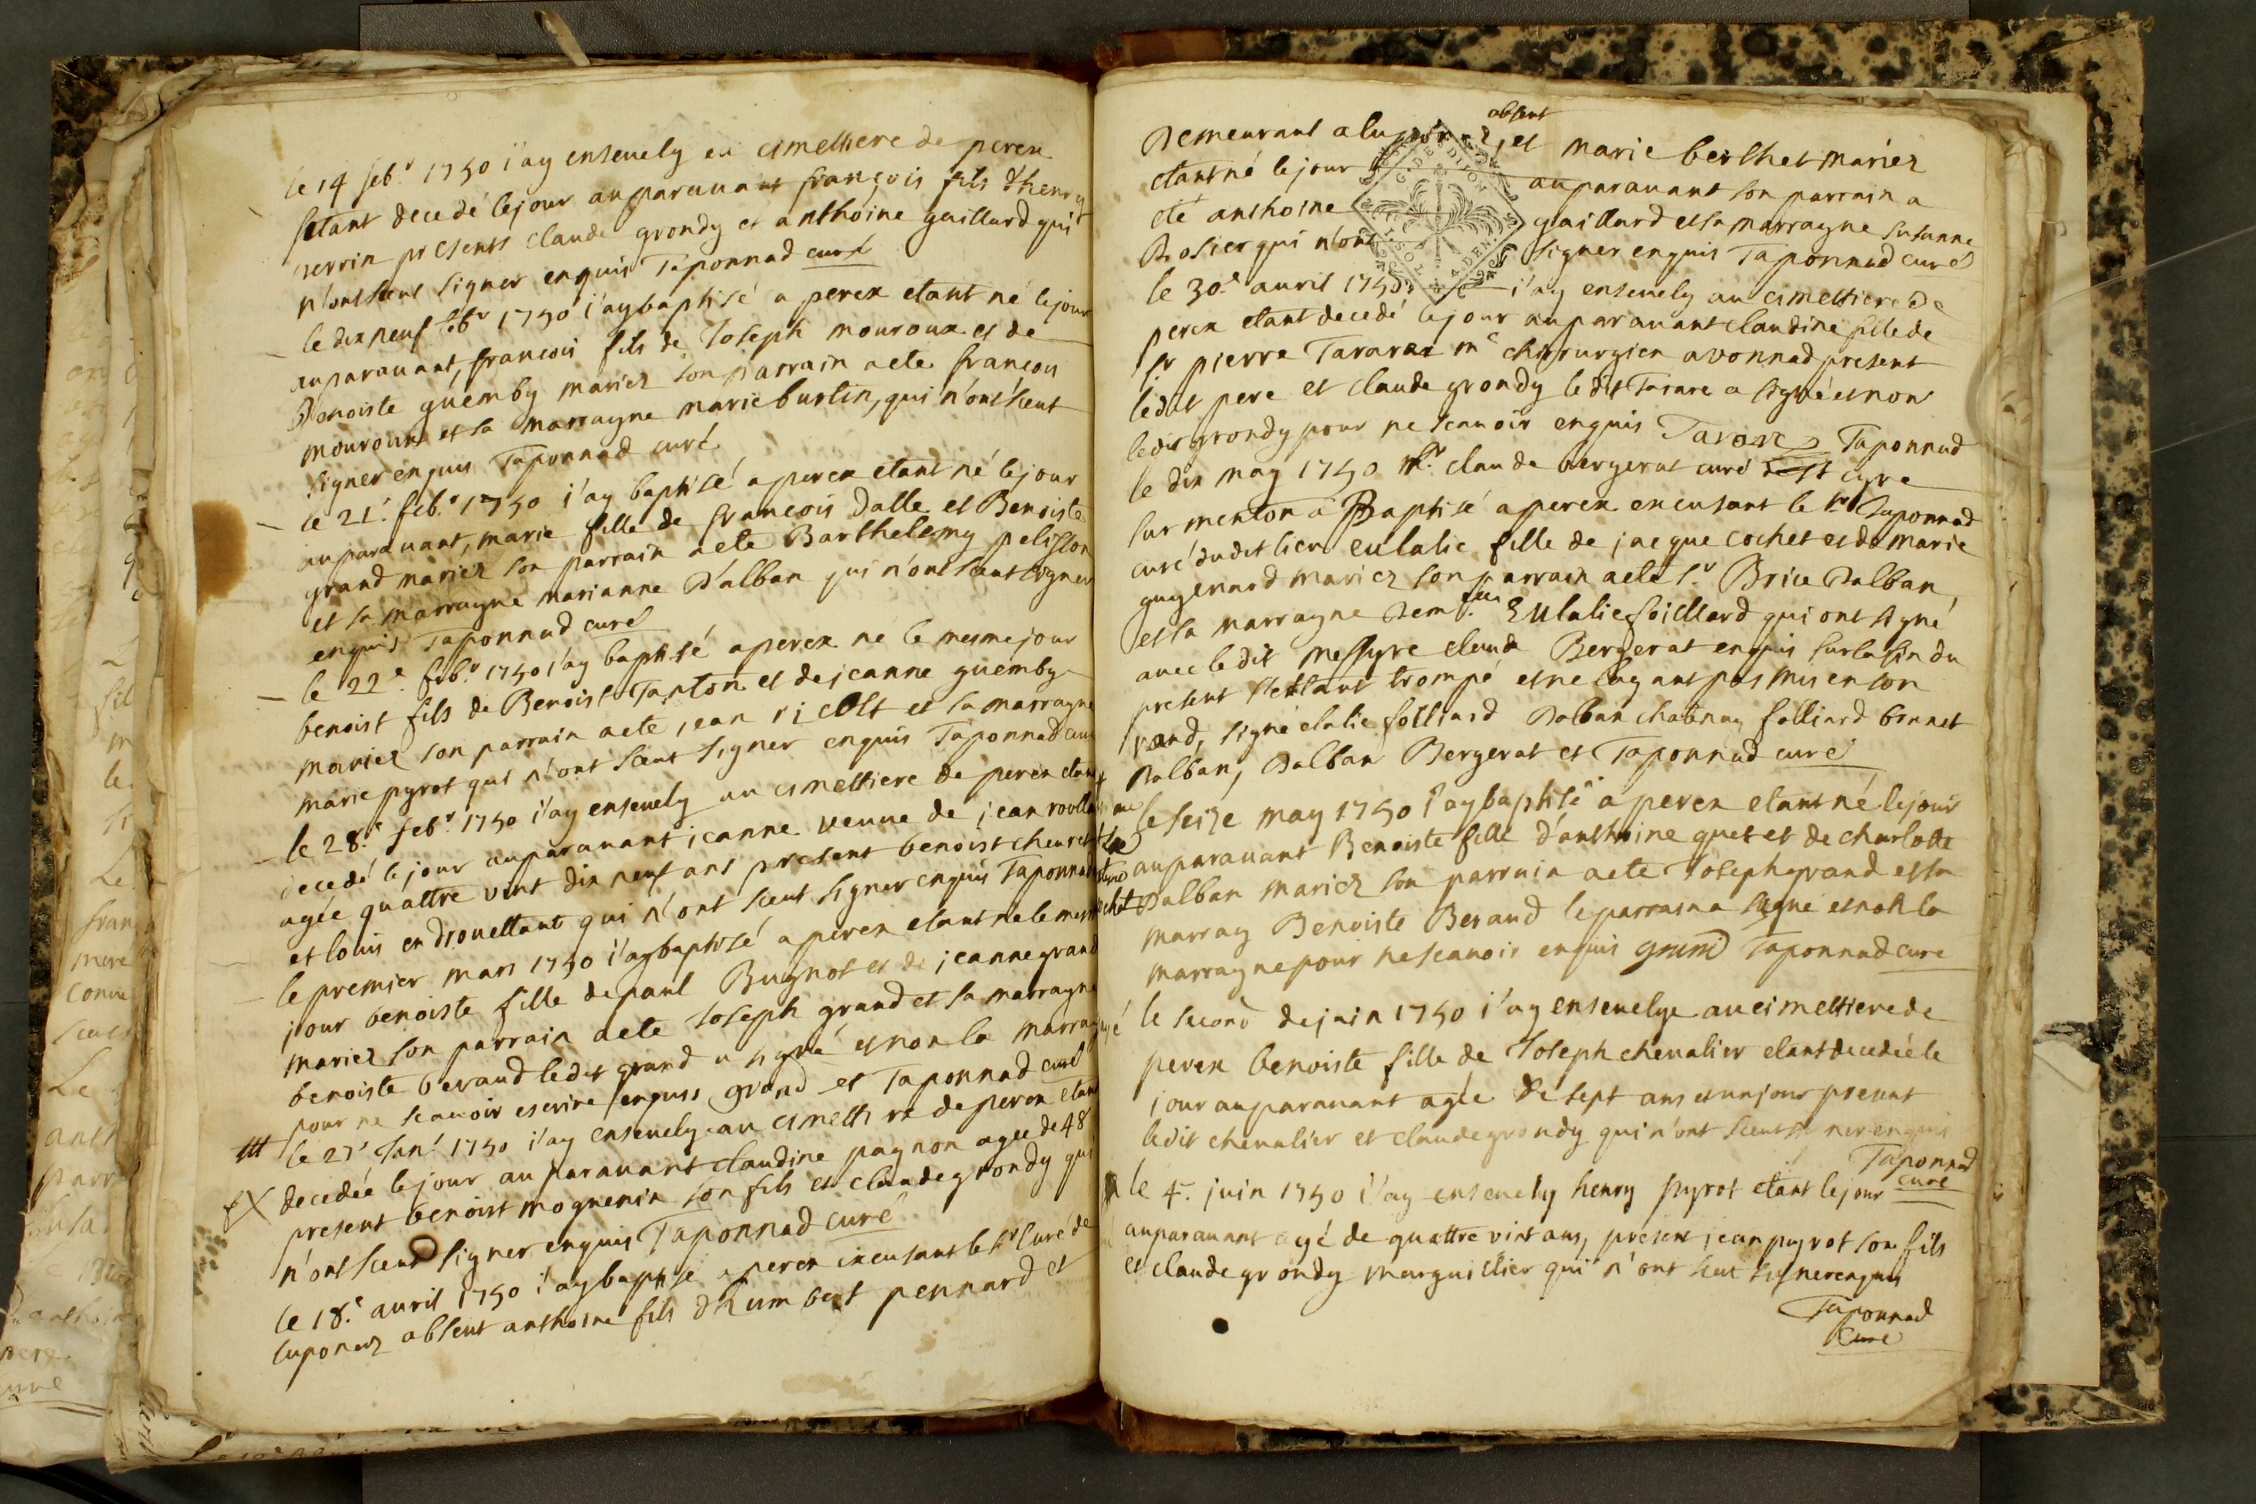 le 14 feb.r 1750 i'ay enseuely eu cimettiere de perex
sétant decedé lejour auparauant françois fils d'henry
perrin presents claude grondy et anthoine gaillard qui
n'ont sceut signer enquis Taponnad curé
le dix neuf febr 1750 i'ay baptisé a perex etant né lejour
auparauant, francois fils de Joseph mouroux et de
Benoiste guemby mariez son parrain a ete francois
mouroux et sa marragne marie burtin, qui n'ont sceut
signer enquis Taponnad curé
le 21.e feb.r 1750 i'ay baptisé a perex etant né lejour
auparauant, marie fille de francois Dalle et Benoiste
grand mariez son parrain a ete Barthelemy pelisson
et sa marragne marianne D'alban qui n'ont sceut signer
enquis Taponnad curé
le 22.e feb.r 1750 i'ay baptisé a perex né le mesme jour
benoist fils de Benoist Tapton et de jeanne guemby
mariez son parrain a ete jean ricolt et sa marragne
marie pyrot qui n'ont sceut signer enquis Taponnad curé
le 28.e febr. 1750 i'ay enseuely au cimettiere de perex etant
decedé le jour auparauant jeanne veuue de jean
agée quattre vint dix neuf ans present benoist
et louis endrouettant qui n'ont sceut signer enquis Taponnad
le premier mars 1750 i'ay baptisé a perex etant né le mesme
jour benoiste fille de paul Bugnot et de jeanne grand
mariez son parrain a ete Joseph grand et sa marragne
benoiste beraud ledit grand a signé et non la marragne
pour ne scauoir escrire enquis grand et Taponnad curé
le 27.e Jan.r 1750 i'ay enseuely au cimettire de perex etant
decedée le jour auparauant claudine pagnon agee de 48
present benoist mognenin son fils et claude grondy qui
n'ont sceut signer enquis Taponnad curé
le 18.e auril 1750 i'ay baptisé a perex excusant le sr curé de
luponnaz absent anthoine fils d'humbert pennard et
absent
Demeurant a , et marie berthet mariez
etant né le jour auparauant son parrain a
eté anthoine gaillard et sa marragne susanne
Rosier qui n'ont signer enquis Taponnad curé
le 30.e auril 1750 i'ay enseuely au cimettiere de
perex etant decedé le jour auparauant claudine fille de
sr pierre Tararre me chirurgien a vonnad present
ledit pere et claude grondy ledit Tarare a signé et non
ledit grondy pour ne scauoir enquis Tarare Taponnad
le dix may 1750 claude bergerat curé de st cyre
sur menton a Baptisé a perex excusant le sr Taponnad
curé dudit lieu eulalie fille de jacque cochet et de marie
guyennard mariez son parrain a eté sr Brice Dalban,
et la marragne Dem.lle Eulalie foilliard qui ont signé
auec ledit messyre claude Bergerat enquis sur la fin du
present s'estant trompé et ne l'ayant pas mis en son
rand, signé elalie folliard Dalban chabnay folliard bonnet
Dalban, Dalban Bergerat et Taponnad curé
le seize may 1750 i'ay baptisé a perex etant né lejour
auparauant Benoiste fille d'anthoine guet et de charlotte
Dalban mariez son parrain a ete Joseph grand et sa
marray Benoiste Beraud le parrain a signé et non la
marragne pour ne scauoir enquis grand Taponnad cure
le second de juin 1750 i'ay enseuelye au cimettiere de
perex benoiste fille de Joseph cheualier etant decedée le
jour auparauant agée de sept ans et un jour present
ledit cheualier et claude grondy qui n'ont sceut signer enquis
Taponnad
curé
le 4.e juin 1750 i'ay enseuely henry pyrot etant le jour
auparauant agé de quattre vint ans, present jean pyrot son fils
et claude grondy marguillier qui n'ont sceut signer enquis
Taponnad
Curé